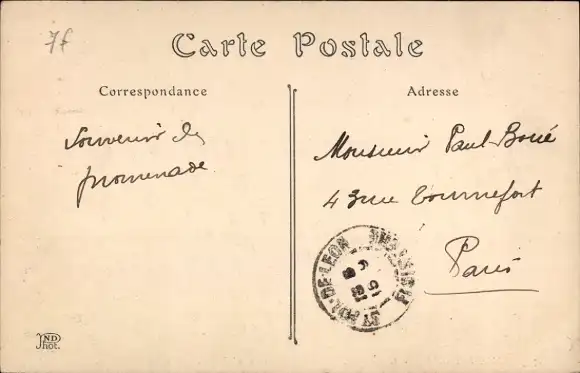 7f
Carte Postale
Correspondance
Adresse
Souvenir de
promenade
Monsieur Paul Boué
43 rue Tournefort
Paris
ST POL-DE-LEON
FINISTERE
ND
Phot.